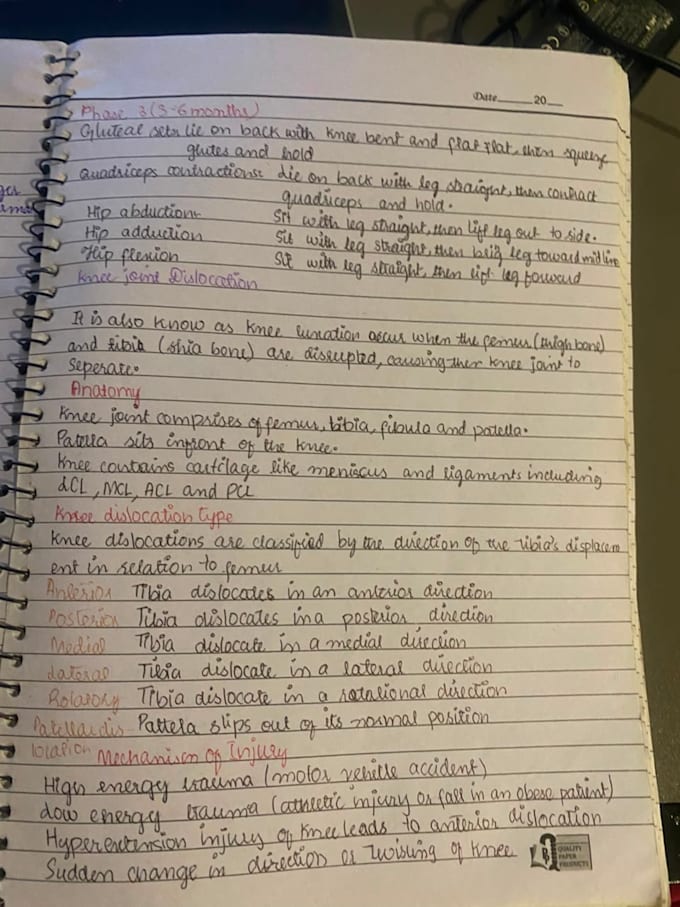 Date 20
Phase 3 (3-6 months)
Gluteal sets lie on back with knee bent and flat, then squeeze
glutes and hold
Quadriceps contractions: lie on back with leg straight, then contract
quadriceps and hold.
Hip abduction Sit with leg straight, then lift leg out to side.
Hip adduction Sit with leg straight, then leg toward midline
Hip flexion Sit with leg straight, then lift leg forward
Knee joint Dislocation
It is also know as knee luxation occur when the femur (thigh bone)
and tibia (shia bone) are disrupted, causing ther knee joint to
seperate.
Anatomy
Knee joint comprises of femur, tibia, fibula and patella.
Patella sits infront of the knee.
Knee contains cartilage like meniscus and ligaments including
LCL, MCL, ACL and PCL
Knee dislocation type
Knee dislocations are classified by the direction of the tibia's displacem
ent in relation to femur
Anterior Tibia dislocates in an anterior direction
Posterior Tibia dislocates in a posterior direction
Medial Tibia dislocate in a medial direction
Lateral Tibia dislocate in a lateral direction
Rotatory Tibia dislocate in a rotational direction
Patellar dis- Pattela slips out of its normal position
location Mechanism of Injury
High energy trauma (motor vehicle accident)
Low energy trauma (athletic injury or fall in an obese patient)
Hyperextension injury of knee leads to anterior dislocation
Sudden change in direction or twising of knee
QUALITY
PAPER
PRODUCTS